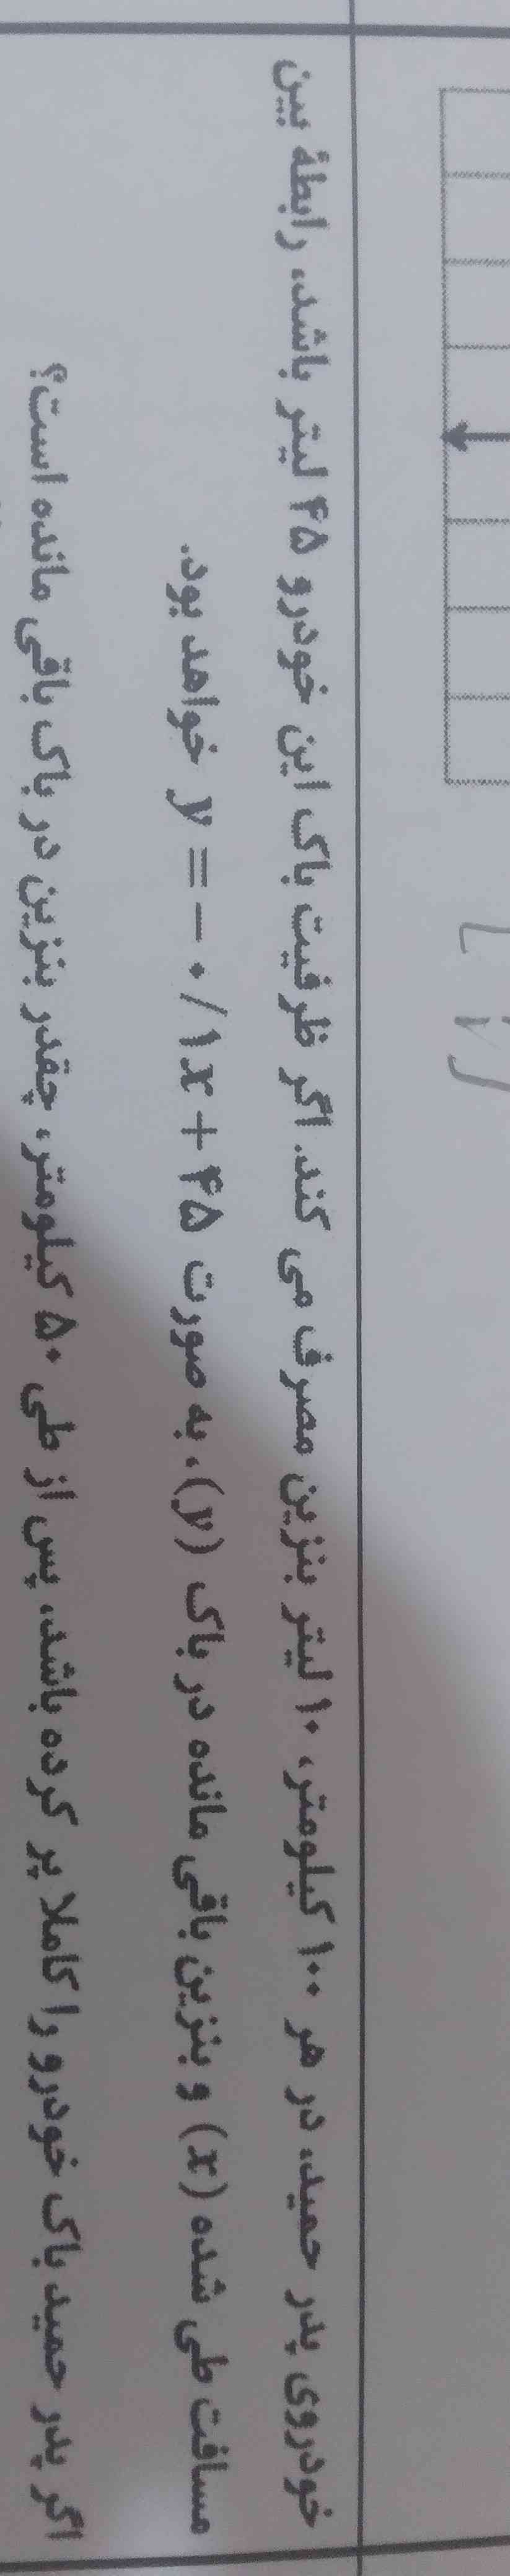 خودروی پدر حمید، در هر ۱۰۰ کیلومتر، ۱۰ لیتر بنزین مصرف می کند. اگر ظرفیت باک این خودرو ۴۵ لیتر باشد، رابطهٔ بین
مسافت طی شده (x) و بنزین باقی مانده در باک (y)، به صورت y = -۰/۱x + ۴۵ خواهد بود.
اگر پدر حمید باک خودرو را کاملا پر کرده باشد، پس از طی ۵۰ کیلومتر، چقدر بنزین در باک باقی مانده است؟